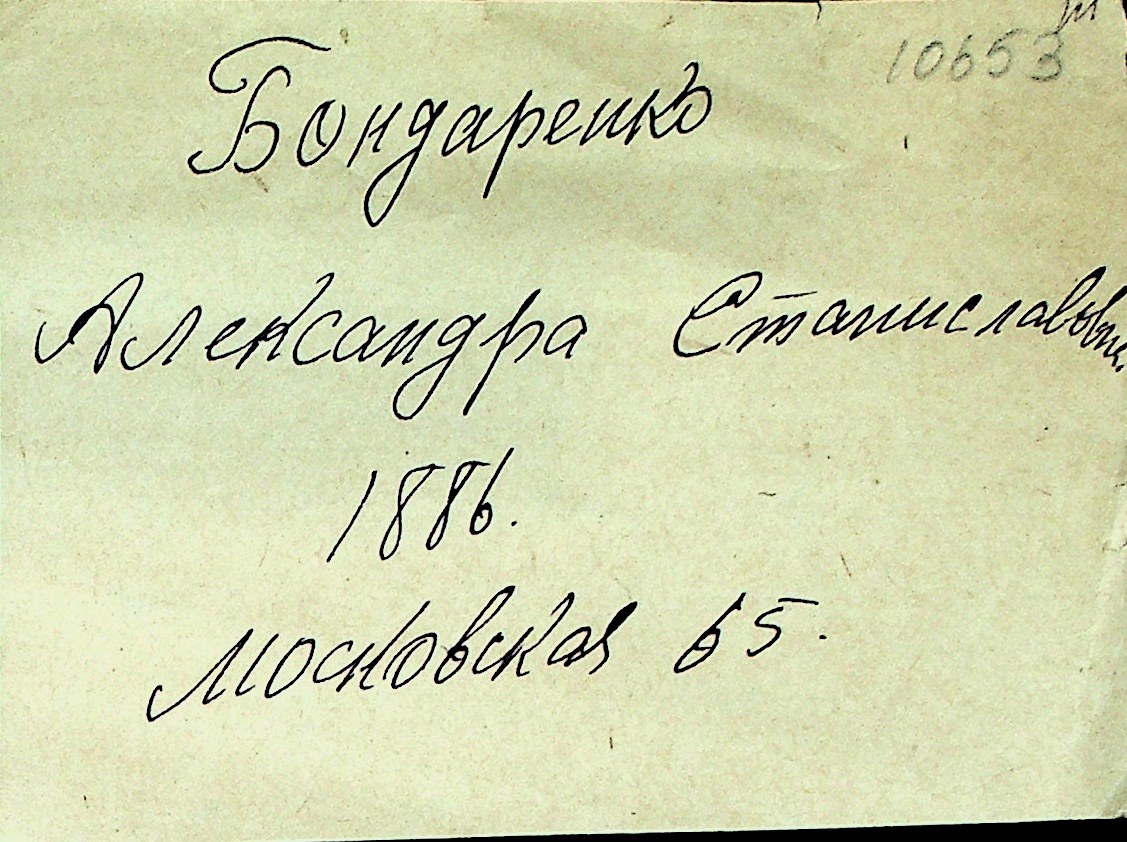 10653
Бондаренко
Александра Станиславовна.
1886.
Московская 65.